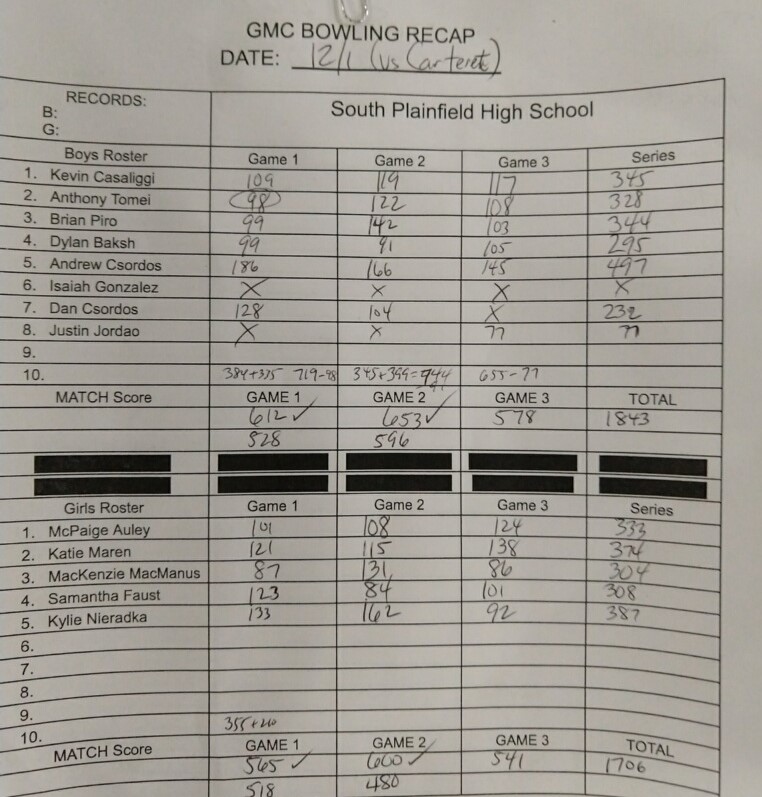 GMC BOWLING RECAP
DATE: 12/1 (vs Carteret)
RECORDS:
B:
G:
South Plainfield High School
Boys Roster Game 1 Game 2 Game 3 Series
1. Kevin Casaliggi 109 119 117 345
2. Anthony Tomei 98 122 108 328
3. Brian Piro 99 142 103 344
4. Dylan Baksh 99 91 105 295
5. Andrew Csordos 186 166 145 497
6. Isaiah Gonzalez X X X X
7. Dan Csordos 128 104 X 232
8. Justin Jordao X X 77 77
9.
10. 384+335 719-98 345+399=744 655-77
MATCH Score GAME 1 GAME 2 GAME 3 TOTAL
612 ✓ 653 ✓ 578 1843
528 596
Girls Roster Game 1 Game 2 Game 3 Series
1. McPaige Auley 101 108 124 333
2. Katie Maren 121 115 138 374
3. MacKenzie MacManus 87 131 86 304
4. Samantha Faust 123 84 101 308
5. Kylie Nieradka 133 162 92 387
6.
7.
8.
9.
10. 355+210
MATCH Score GAME 1 GAME 2 GAME 3 TOTAL
565 ✓ 600 ✓ 541 1706
518 480